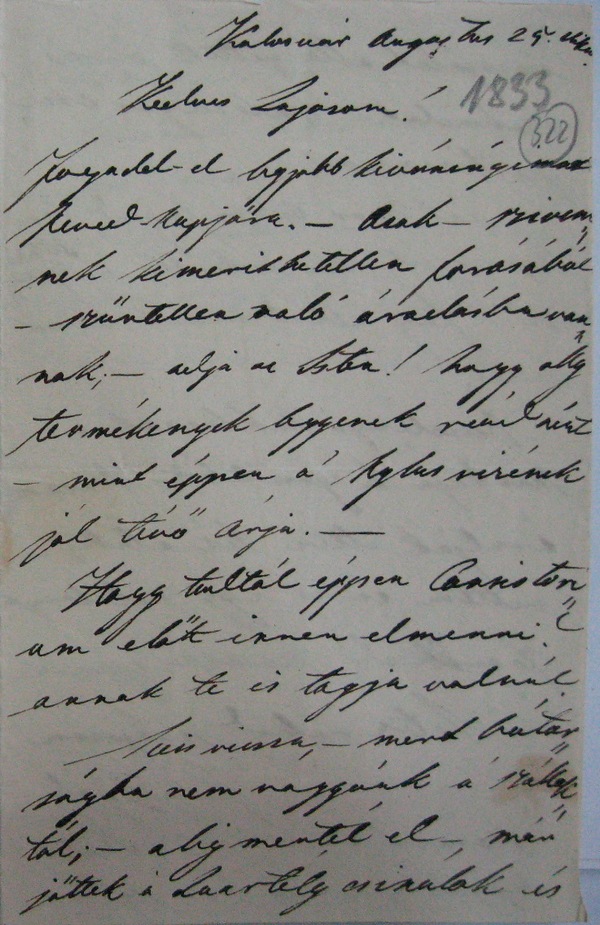 Kolosvár Augustus 25.
1833
322
Kedves Lajosom!
fogadd-el legjobb kivánságimat
neved napjára. — Azok — szivem
nek kimerithetetlen forásából
— szüntellen való áradásban van
nak; — adja az Isten! hogy oly
termékenyek legyenek reád nézt
— mint éppen a' Nylus vizének
jól tévő árja. —
Hogy tudtál éppen Consistori
um elött innen elmenni?
annak te is tagja valál.
vissza, — mert bátor
ságba nem vagyunk a'
tól; — alig mentél el — már
jöttek a' Quartély csinálok és